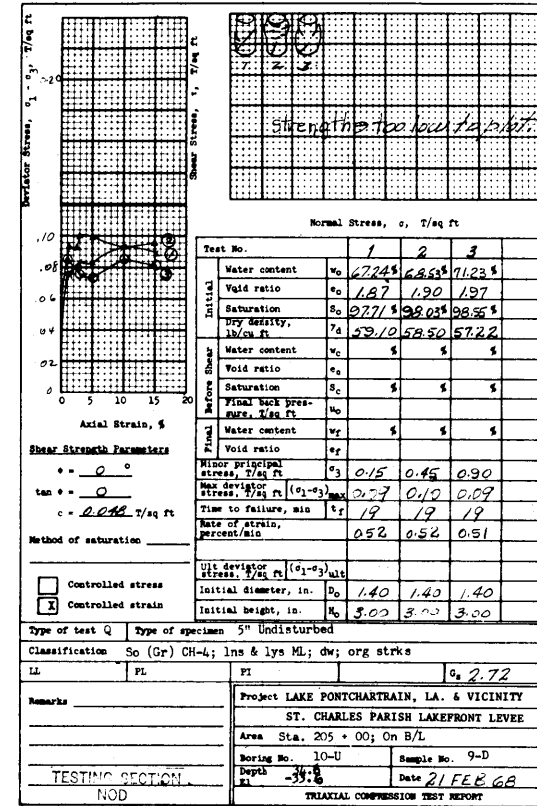 Deviator Stress, σ1 - σ3, T/sq ft
Shear Stress, τ, T/sq ft
.20
1 2 3
Strengths too low to plot.
Normal Stress, σ, T/sq ft
.10
.08
.06
.04
.02
0
0 5 10 15 20
Axial Strain, %
Shear Strength Parameters
φ = 0 °
tan φ = 0
c = 0.048 T/sq ft
Method of saturation
Controlled stress
X Controlled strain
Test No. 1 2 3
Initial
Water content wo 67.24% 68.53% 71.23%
Void ratio eo 1.87 1.90 1.97
Saturation So 97.71% 98.03% 98.55%
Dry density, lb/cu ft γd 59.10 58.50 57.22
Before Shear
Water content wc % % %
Void ratio ec
Saturation Sc % % %
Final back pressure, T/sq ft uo
Final
Water content wf % % %
Void ratio ef
Minor principal stress, T/sq ft σ3 0.15 0.45 0.90
Max deviator stress, T/sq ft (σ1-σ3)max 0.09 0.10 0.09
Time to failure, min tf 19 19 19
Rate of strain, percent/min 0.52 0.52 0.51
Ult deviator stress, T/sq ft (σ1-σ3)ult
Initial diameter, in. Do 1.40 1.40 1.40
Initial height, in. Ho 3.00 3.00 3.00
Type of test Q Type of specimen 5" Undisturbed
Classification So (Gr) CH-4; lns & lys ML; dw; org strks
LL PL PI Gs 2.72
Remarks
TESTING SECTION
NOD
Project LAKE PONTCHARTRAIN, LA. & VICINITY
ST. CHARLES PARISH LAKEFRONT LEVEE
Area Sta. 205 + 00; On B/L
Boring No. 10-U Sample No. 9-D
Depth
El
Date 21 FEB 68
TRIAXIAL COMPRESSION TEST REPORT